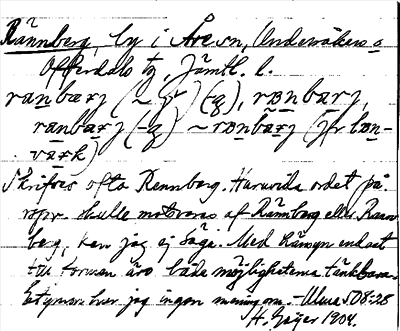 Rännberg, by i
Offerdals tg, Jämtl. l.
ranbærj (~ ) (-g), rɒnbarj,
ranbarj (-g) ~ rɒnbarj (jfr
Skrifves ofta Rennberg. Huruvida ordet på
skulle motsvaras af Rännberg eller
berg, kan jag ej säga. Med hänsyn endast
till formen äro båda möjligheterna tänkbara.
Etymon har jag ingen mening om. - Ulma 508:28
H. Geijer 1904.